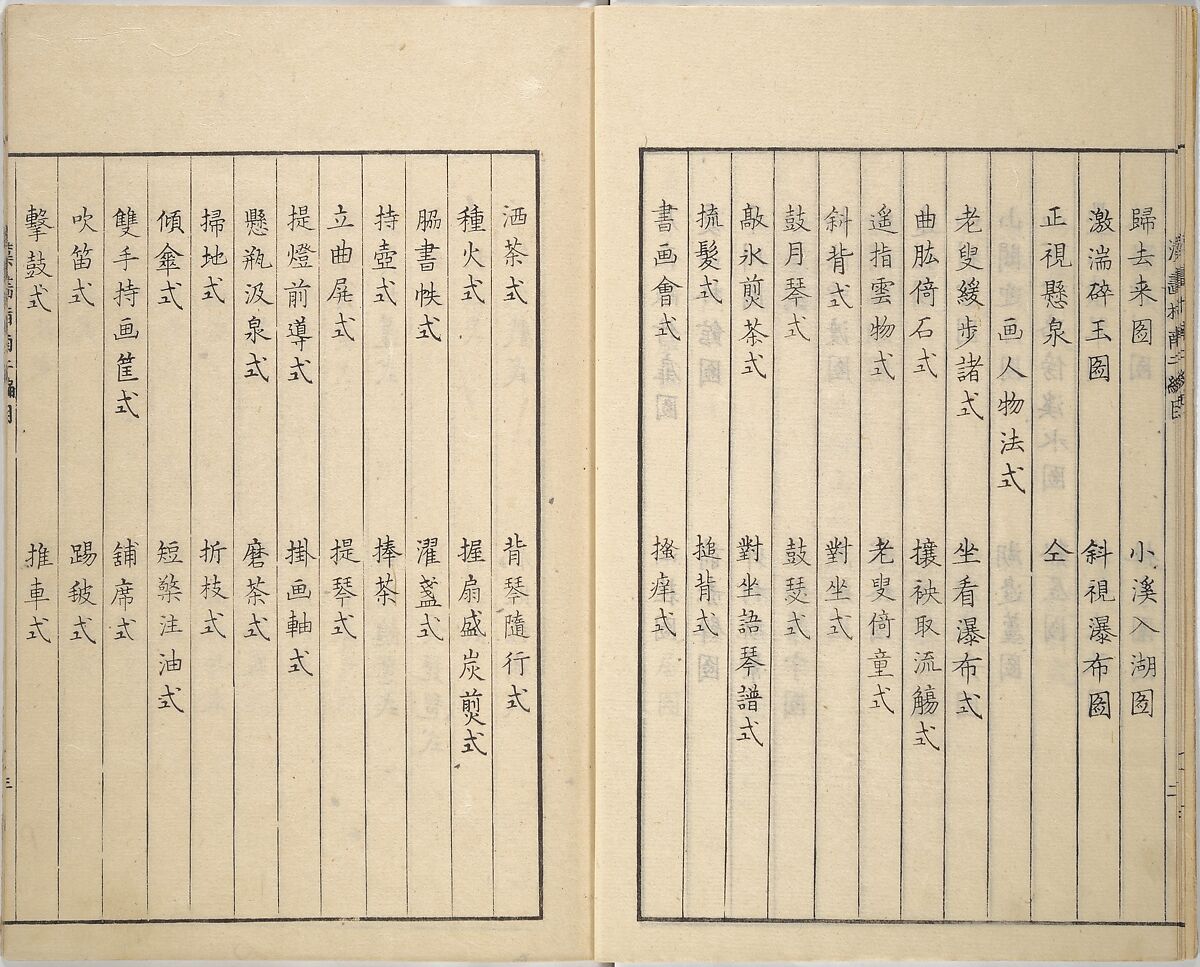 歸去来圖 小溪入湖圖
激湍碎玉圖 斜視瀑布圖
正視懸泉 仝
画人物法式
老叟緩步諸式 坐看瀑布式
曲肱倚石式 攘袂取流觴式
遥指雲物式 老叟倚童式
斜背式 對坐式
鼓月琴式 鼓瑟式
敲氷煎茶式 對坐語琴譜式
梳髮式 搥背式
書画會式 搔痒式
洒茶式 背琴隨行式
種火式 握扇盛炭煎式
脇書帙式 濯盞式
持壺式 捧茶
立曲屍式 提琴式
提燈前導式 掛画軸式
懸瓶汲泉式 磨茶式
掃地式 折枝式
傾傘式 短檠注油式
雙手持画筐式 舖席式
吹笛式 踢毬式
擊鼓式 推車式